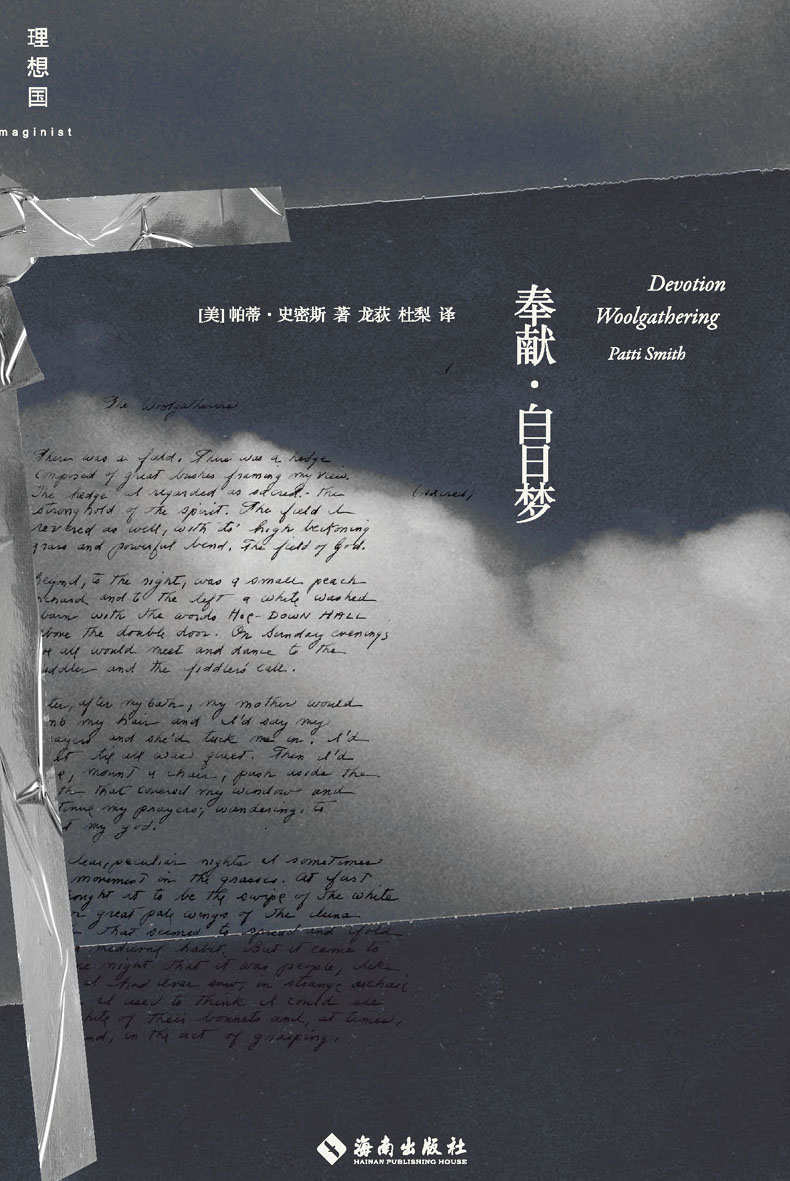 理想国
maginist
Devotion
Woolgathering
Patti Smith
奉献·白日梦
[美] 帕蒂·史密斯 著 龙荻 杜梨 译
The Woolgatherers
There was a field. There was a hedge
composed of great bushes framing my view.
The hedge I regarded as sacred. the
(sacred)
stronghold of the spirit. The field I
revered as well, with its' high beckoning
grass and powerful bend. The field of God.
Beyond, to the right, was a small peach
orchard and to the left a white washed
barn with the words HOE-DOWN HALL
above the double door. On Sunday evenings
we all would meet and dance to the
fiddler and the fiddler's call.
after my bath, my mother would
my hair and I'd say my
and she'd tuck me in. I'd
til all was quiet. Then I'd
mount a chair, push aside the
that covered my window and
my prayers, wandering, to
my god.
clear, peculiar nights I sometimes
movement in the grasses. At first
thought it to be the swipe of the white
great pale wings of the luna
that seemed to spread and fold
medieval habit. But it came to
night that it was people, like
I had ever saw, in strange archaic
I used to think I could see
white of their bonnets and, at times,
in the act of grasping.
海南出版社
HAINAN PUBLISHING HOUSE